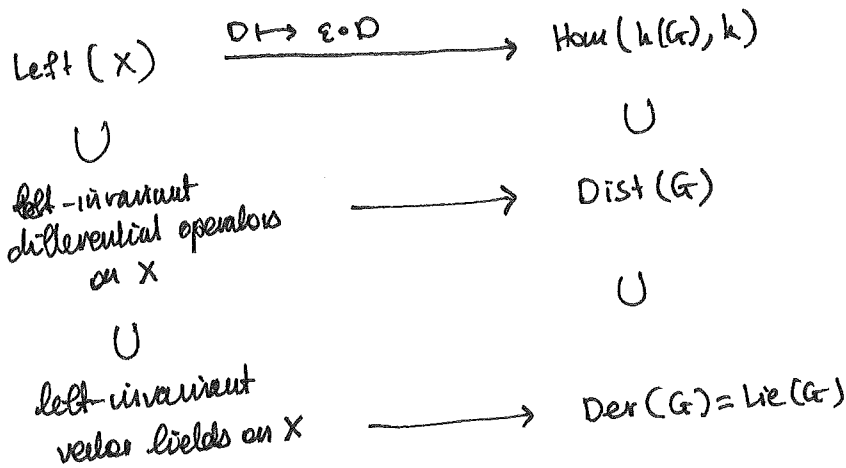 D ↦ ε∘D
Left (X) ⟶ Hom (k(G), k)
∪ ∪
left-invariant
differential operators ⟶ Dist (G)
on X
∪ ∪
left-invariant
vector fields on X ⟶ Der (G) = Lie (G)